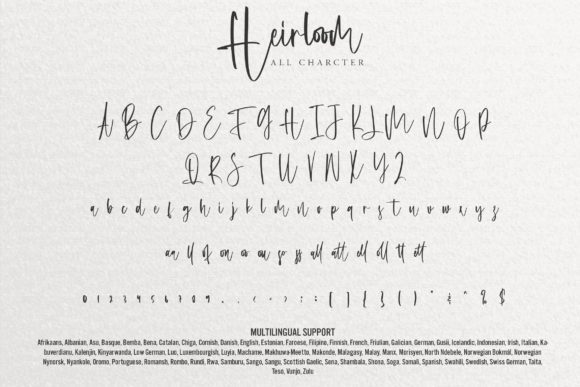 Heirloom
ALL CHARCTER
A B C D E F G H I J K L M N O P
Q R S T U V W X Y Z
a b c d e f g h i j k l m n o p q r s t u v w x y z
aa ll of on or ou so ss all att ell oll tt ett
0 1 2 3 4 5 6 7 8 9
MULTILINGUAL SUPPORT
Afrikaans, Albanian, Asu, Basque, Bemba, Bena, Catalan, Chiga, Cornish, Danish, English, Estonian, Faroese, Filipino, Finnish, French, Friulian, Galician, German, Gusii, Icelandic, Indonesian, Irish, Italian, Ka-
buverdianu, Kalenjin, Kinyarwanda, Low German, Luo, Luxembourgish, Luyia, Machame, Makhuwa-Meetto, Makonde, Malagasy, Malay, Manx, Morisyen, North Ndebele, Norwegian Bokmål, Norwegian
Nynorsk, Nyankole, Oromo, Portuguese, Romansh, Rombo, Rundi, Rwa, Samburu, Sango, Sangu, Scottish Gaelic, Sena, Shambala, Shona, Soga, Somali, Spanish, Swahili, Swedish, Swiss German, Taita,
Teso, Vunjo, Zulu